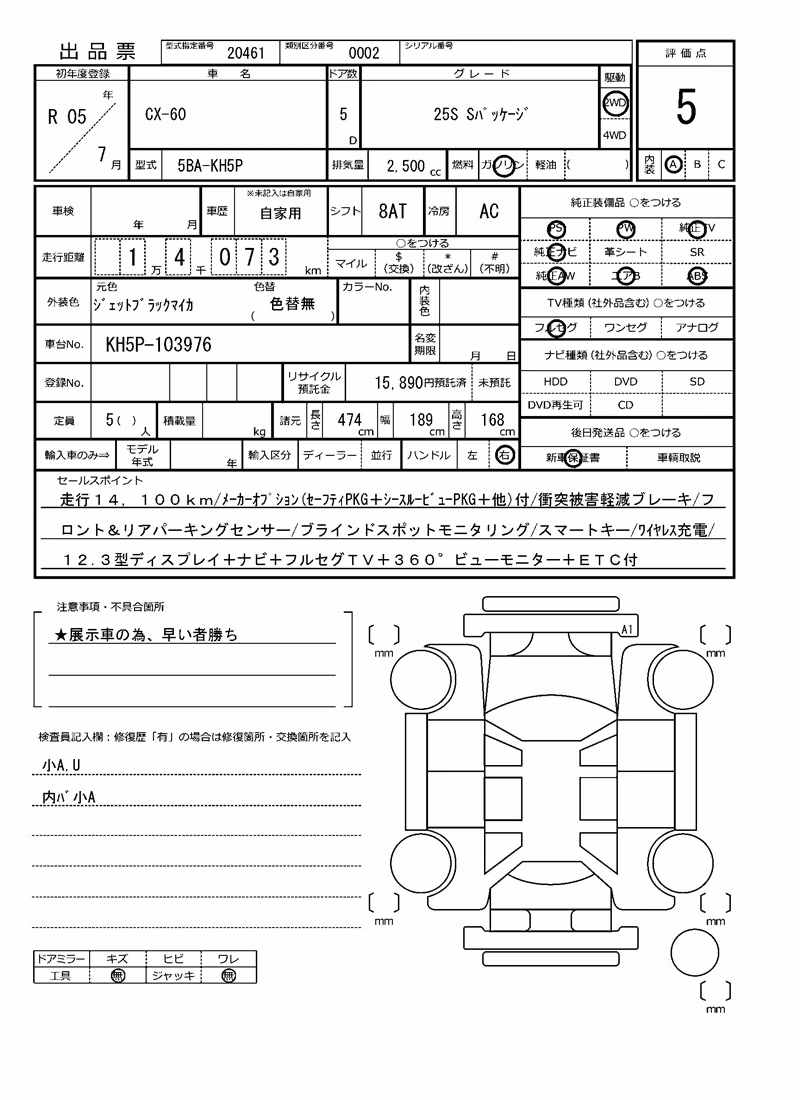 出品票
型式指定番号 20461 類別区分番号 0002 シリアル番号
評価点
初年度登録 車名 ドア数 グレード 駆動
R 05 年 7 月
CX-60
5 D
25S Sパッケージ
2WD
4WD
5
型式 5BA-KH5P 排気量 2,500 cc 燃料 ガソリン 軽油 ( )
内装 A B C
車検 年 月 車歴 ※未記入は自家用 自家用 シフト 8AT 冷房 AC
走行距離 1 万 4 千 0 7 3 km
○をつける
マイル $(交換) *(改ざん) #(不明)
外装色 元色 ジェットブラックマイカ 色替 ( 色替無 ) カラーNo. 内装色
車台No. KH5P-103976 名変期限 月 日
登録No. リサイクル預託金 15,890円預託済 未預託
定員 5( )人 積載量 kg 諸元 長さ 474cm 幅 189cm 高さ 168cm
輸入車のみ⇒ モデル年式 年 輸入区分 ディーラー 並行 ハンドル 左 右
純正装備品 ○をつける
PS PW 純正TV
純正ナビ 革シート SR
純正AW エアB ABS
TV種類(社外品含む)○をつける
フルセグ ワンセグ アナログ
ナビ種類(社外品含む)○をつける
HDD DVD SD
DVD再生可 CD
後日発送品 ○をつける
新車保証書 車輌取説
セールスポイント
走行14,100km/メーカーオプション(セーフティPKG+シースルービューPKG+他)付/衝突被害軽減ブレーキ/フ
ロント&リアパーキングセンサー/ブラインドスポットモニタリング/スマートキー/ワイヤレス充電/
12.3型ディスプレイ+ナビ+フルセグTV+360°ビューモニター+ETC付
注意事項・不具合箇所
★展示車の為、早い者勝ち
検査員記入欄:修復歴「有」の場合は修復箇所・交換箇所を記入
小A,U
内バ小A
ドアミラー キズ ヒビ ワレ
工具 無 ジャッキ 無
A1
mm
mm
mm
mm
mm